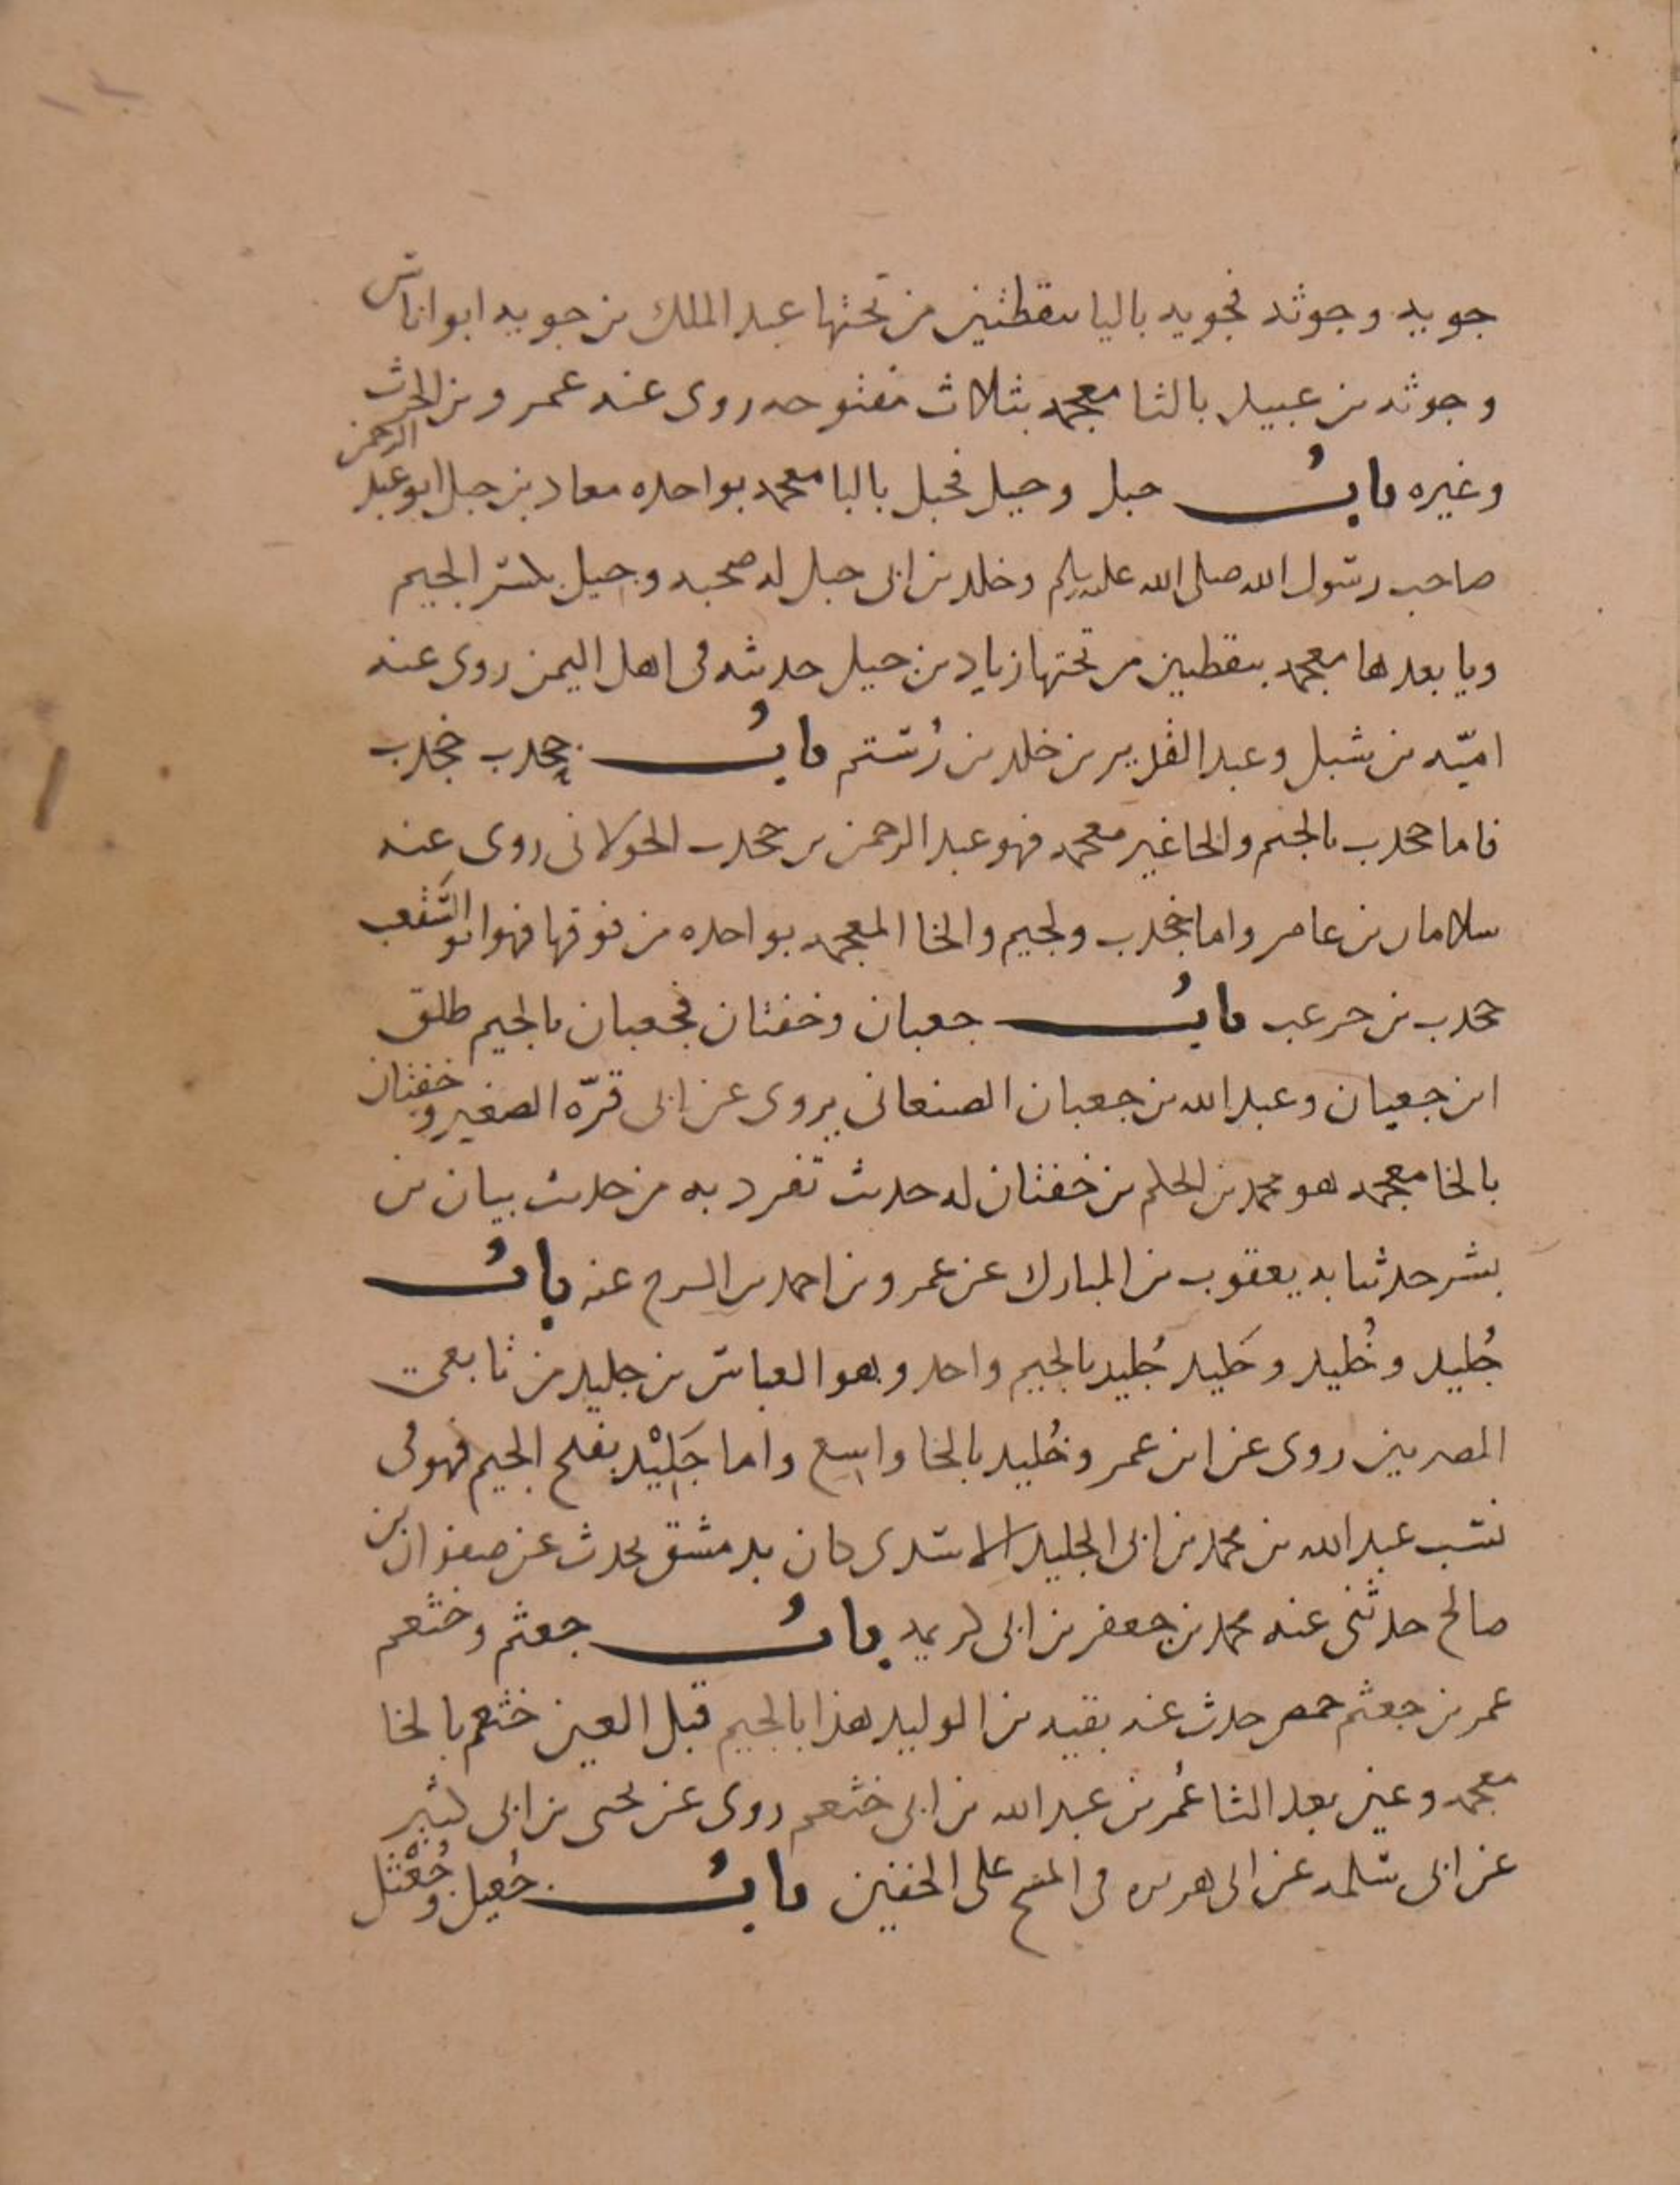 جويه وجوثه فجويه باليا بنقطتين من تحتها عبد الملك بن جويه ابو اناس
وجوثه بن عبيد بالثا معجمه بثلاث مفتوحه روى عنه عمرو بن الحرث
وغيره باب جبل وجيل فجبل بالبا معجمه بواحده معاد بن جبل ابو عبد الرحمن
صاحب رسول الله صلى الله عليه وسلم وخلد بن ابى جبل له صحبه وجيل بكسر الجيم
ويا بعدها معجمه بنقطين من تحتها زياد بن جيل حديثه فى اهل اليمن روى عنه
اميّه بن شبل وعبد القدير بن خلد بن رُستم باب جحدب جخدب
فاما جحدب بالجيم والحا غير معجمه فهو عبد الرحمن بن جحدب الخولانى روى عنه
سلامان بن عامر واما جخدب ولجيم والخا المعجمه بواحده من فوقها فهو ابو السَّقعب
جخدب بن جرعب باب جعبان وخفتان فجعبان بالجيم طلق
ابن جعبان وعبد الله بن جعبان الصنعانى يروى عن ابى قرّه الصغير وخفتان
بالخا معجمه هو محمد بن الحكم بن خفتان له حديث تفرد به من حديث بيان بن
بشر حدثنا به يعقوب بن المبارك عن عمرو بن احمد بن السرح عنه باب
جُليد وخُليد وجَليد جُليد بالجيم واحد وهو العباس بن جليد من تابعى
المصريين روى عن ابن عمر وخُليد بالخا واسع واما جَلِيْد بفتح الجيم فهو فى
نسب عبد الله بن محمد بن ابى الجليد الاسدى كان بدمشق يحدث عن صفوان بن
صالح حدثنى عنه محمد بن جعفر بن ابى كريمه باب جعثم وخثعم
عمر بن جعثم حمصى حدث عنه بقيه بن الوليد هذا بالجيم قبل العين خثعم بالخا
معجمه وعين بعد الثا عُمر بن عبد الله بن ابى خثعم روى عن يحيى بن ابى كثير
عن ابى سلمه عن ابى هريره فى المسح على الخفين باب جُعيل وجُعْثل